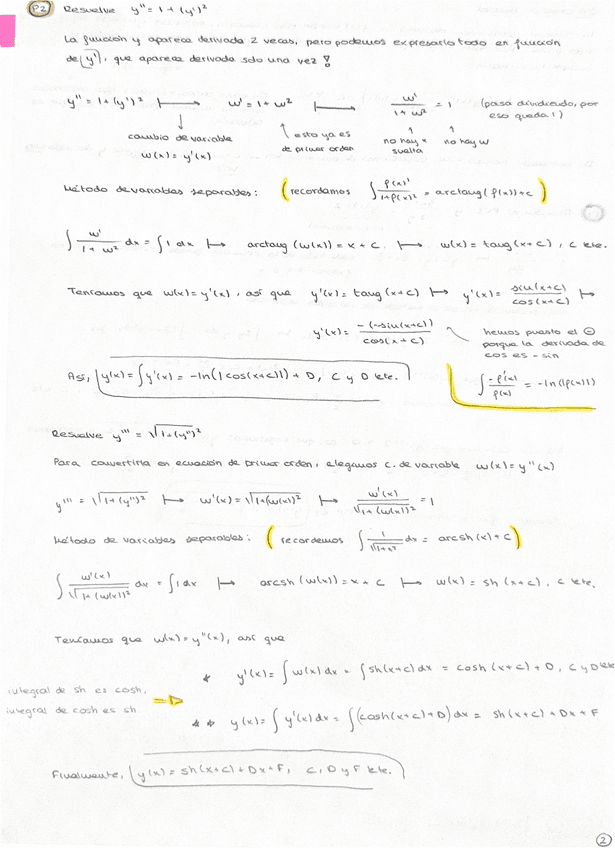 P2 Resuelve y'' = 1 + (y')²
La función y aparece derivada 2 veces, pero podemos expresarlo todo en función
de (y'), que aparece derivada solo una vez!
y'' = 1 + (y')² ⟼ w' = 1 + w² ⟼ w'/(1 + w²) = 1 (pasa dividiendo, por eso queda 1)
↓ cambio de variable w(x) = y'(x)
esto ya es de primer orden
no hay x suelta
no hay w
Método de variables separables: (recordamos ∫ f(x)'/(1+f(x)²) = arctang(f(x)) + c)
∫ w'/(1 + w²) dx = ∫ 1 dx ⟼ arctang(w(x)) = x + c. ⟼ w(x) = tang(x+c), c kte.
Teníamos que w(x) = y'(x), así que y'(x) = tang(x+c) ⟼ y'(x) = sin(x+c)/cos(x+c) ⟼
y'(x) = -(-sin(x+c))/cos(x+c)
hemos puesto el ⊖
porque la derivada de
cos es - sin
Así, y(x) = ∫ y'(x) = -ln(|cos(x+c)|) + D, C y D kte.
∫ -f'(x)/f(x) = -ln(|f(x)|)
Resuelve y''' = √(1+(y'')²)
Para convertirla en ecuación de primer orden, elegimos c. de variable w(x) = y''(x)
y''' = √(1+(y'')²) ⟼ w'(x) = √(1+(w(x))²) ⟼ w'(x)/√(1+(w(x))²) = 1
Método de variables separables: (recordemos ∫ 1/√(1+x²) dx = arcsh(x) + c)
∫ w'(x)/√(1+(w(x))²) dx = ∫ 1 dx ⟼ arcsh(w(x)) = x + c ⟼ w(x) = sh(x+c), c kte.
Teníamos que w(x) = y''(x), así que
* y'(x) = ∫ w(x) dx = ∫ sh(x+c) dx = cosh(x+c) + D, C y D kte
integral de sh es cosh,
integral de cosh es sh
** y(x) = ∫ y'(x) dx = ∫ (cosh(x+c) + D) dx = sh(x+c) + Dx + F
Finalmente, y(x) = sh(x+c) + Dx + F, C, D y F kte.
2